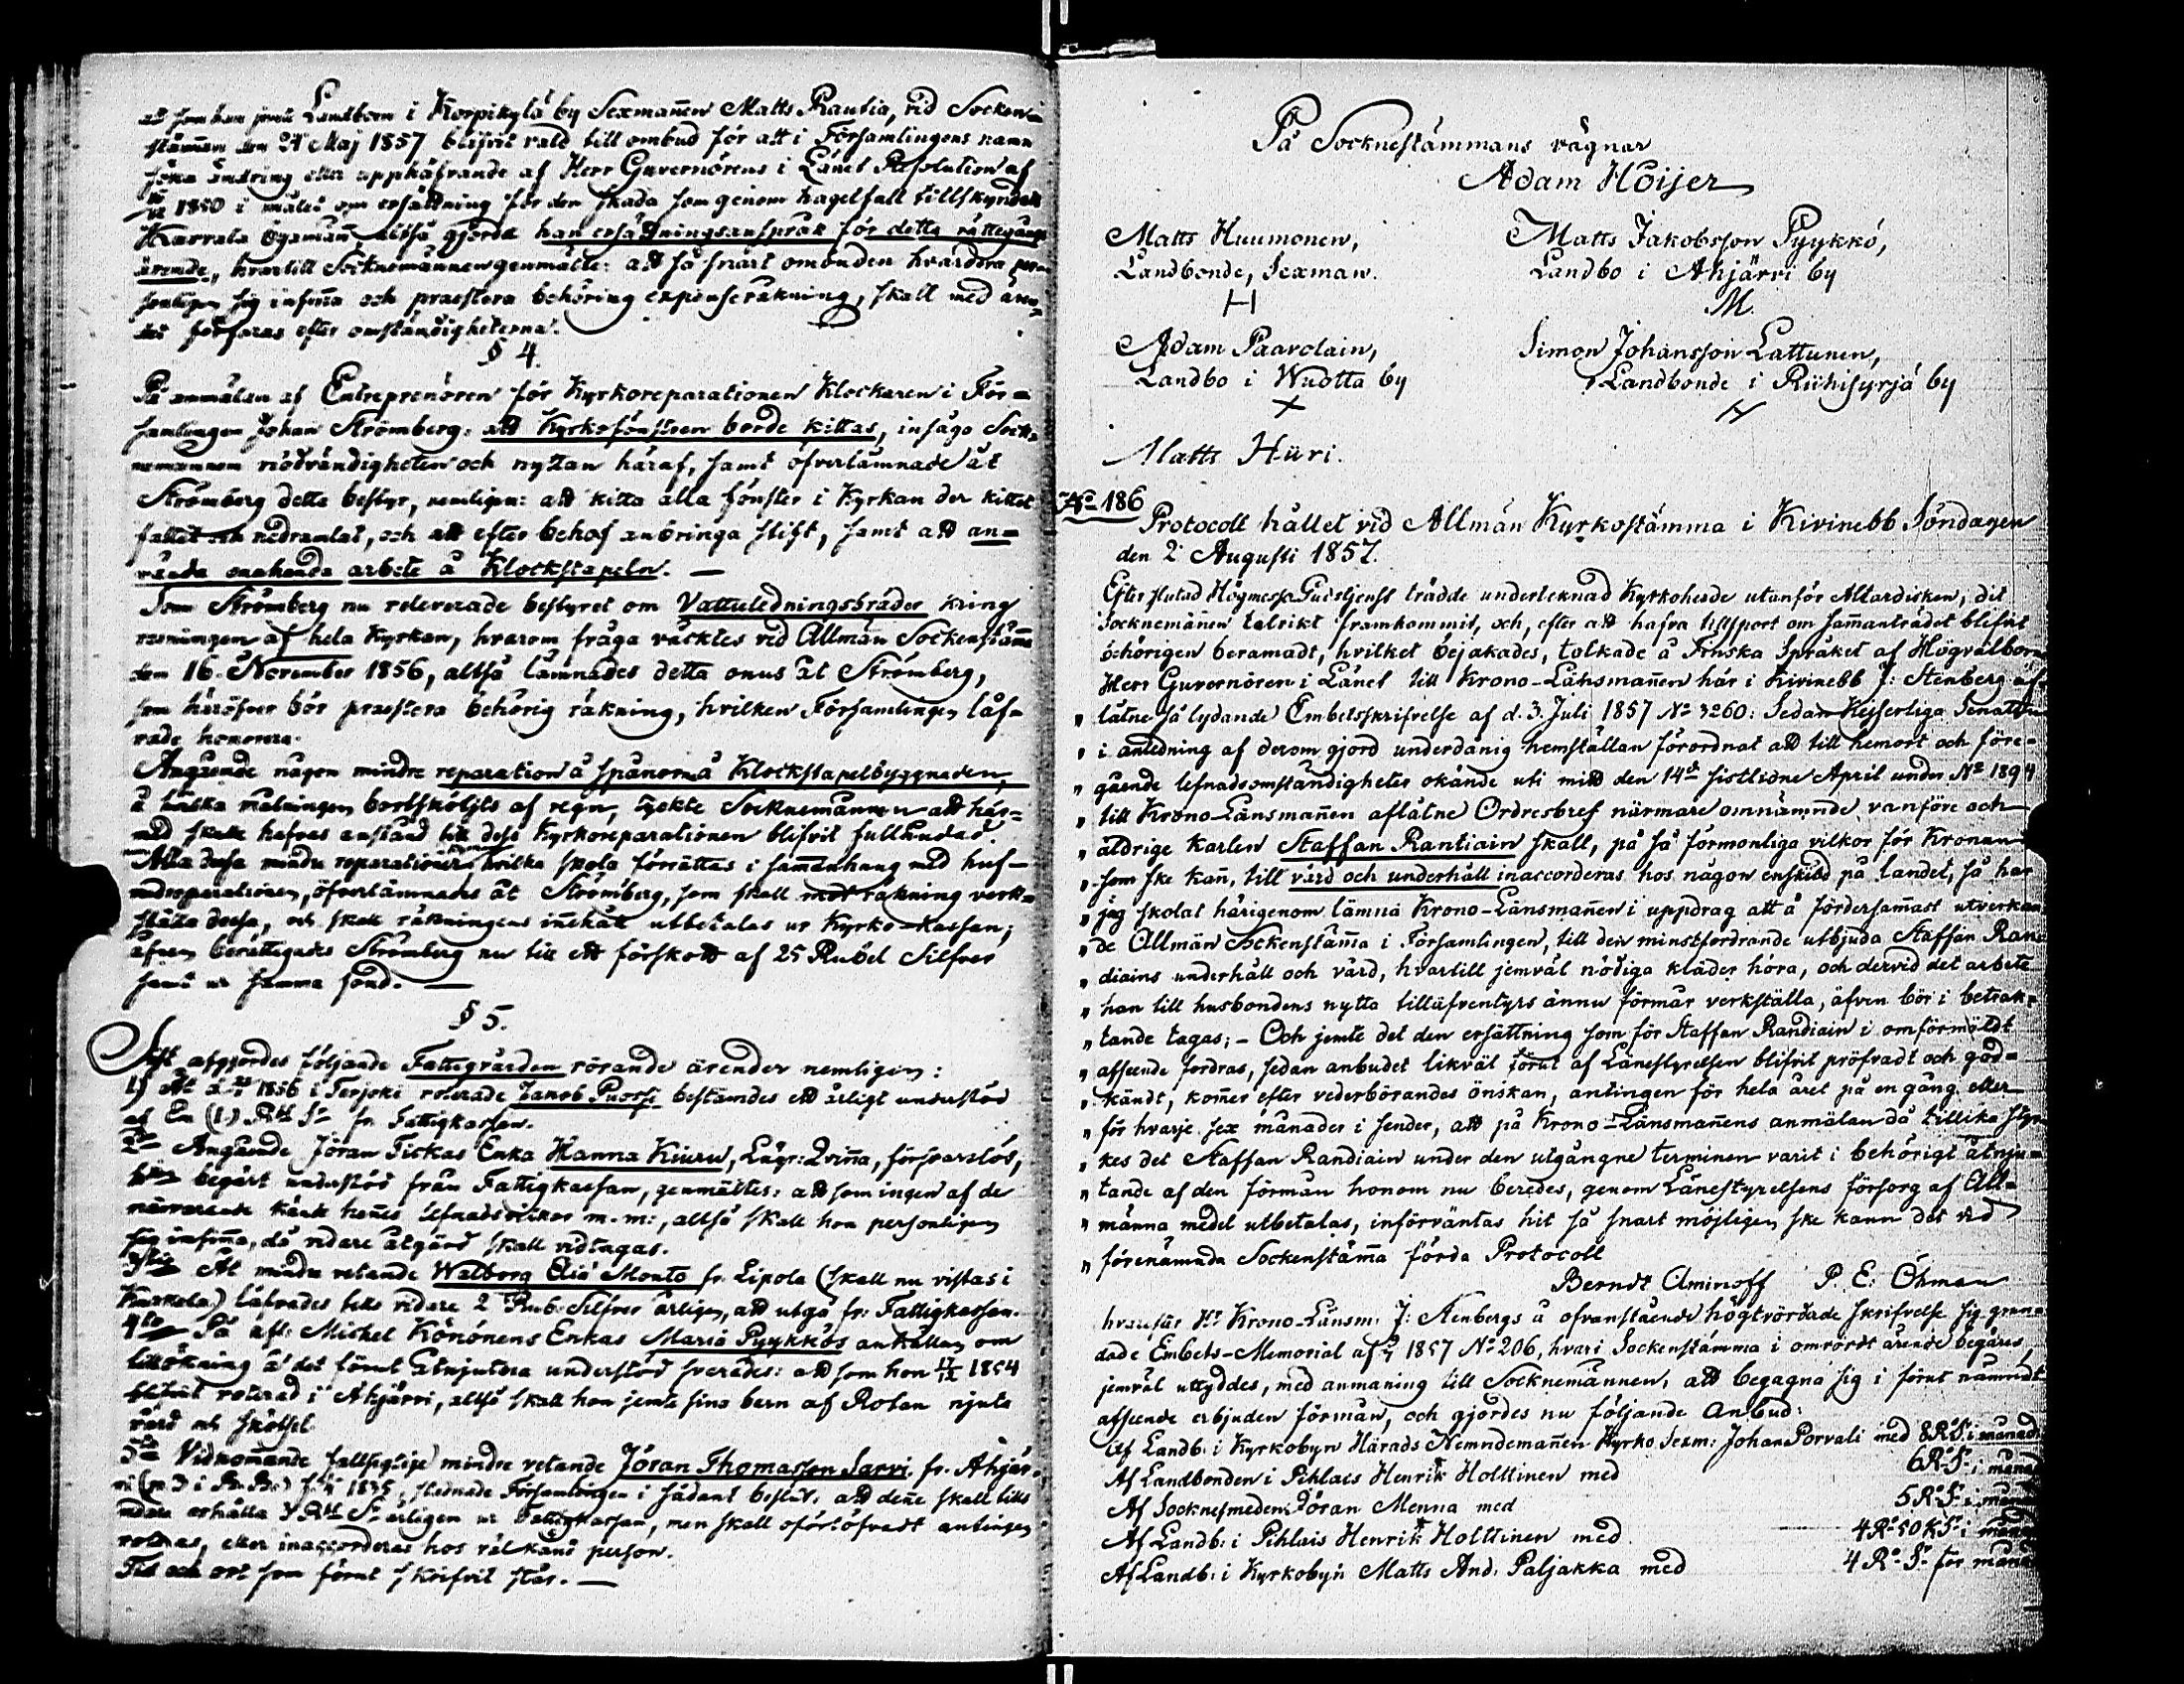 som han jemte Landtbon i Korpikylä by Sexmañen Matts Rautia, vid Socken=
stämman den 21 Maj 1857 blifvit vald till ombud för att i Församlingens namn
söka ändring eller upphäfvande af Herr Guvernörens i Länet Resolution af
1850 i målet om ersättning för den skada som genom hagelfall tillskyndats
Karvala byamän, altså gjorde han ersättningsanspråk för detta rättegångs
ärende, hvartill Socknemännen genmälte: att så snart ombuden hvardera per=
sonligen sig infiña och præstera behöring expenseräkning, skall med ären=
det förfaras efter omständigheterna.
§ 4.
På anmälan af Entreprenören för Kyrkoreparationen Klockaren i För=
samlingen Johan Strömberg: att Kyrkofönstren borde kittas, insågo Sock=
nemännen nödvändigheten och nyttan häraf, samt öfverlämnade åt
Strömberg detta bestyr, nemligen: att kitta alla fönster i Kyrkan der kittet
fallit nedramlat, och att efter behof anbringa stift, samt att an=
vända enahanda arbete å Klockstapeln. —
Som Strömberg nu releverade bestyret om Vattuledningsbräder kring
resningen af hela Kyrkan, hvarom fråga väcktes vid Allmän Sockenstäma
den 16. November 1856, altså lämnades detta onus åt Strömberg,
som häröfver bör præstera behörig räkning, hvilken Församlingen låf=
vade honorera.
Angående någon mindre reparation å spånorna å Klockstapelbyggnaden,
å hvilka målningen bortsköljts af regn, tyckte Socknemännen att här=
med skall hafvas anstånd till dess Kyrkoreparationen blifvit fulländad
Alla dessa mindre reparationer hvilka skola förrättas i samanhang med huf=
vudreparationen, öfverlämnades åt Strömberg, som skall mot räkning verk=
ställa dessa, och skall räkningens iñehåll utbetalas ur Kyrko-Kassan;
äfven berättigades Strömberg nu till ett förskott af 25 Rubel Silfver
samt ur samma fond. —
§ 5.
Sist afgjordes följande Fattigvården rörande ärender nemligen:
1) Åt 1856 i Terjoki roterade Jakob Puossi bestämdes ett årligt understöd
af En (1.) Rbl Sr fr. Fattigkassan.
2do Angående Jöran Tickas Enka Hanna Kiuru, Lägr: Qviña, försvarslös,
begärt understöd från Fattigkassan, genmältes: att som ingen af de
närvarande känt heñes lefnadsvilkor m.m:, altså skall hon personligen
sig infiña, då vidare åtgärd skall vidtagas.
3tio Åt mindre vetande Walborg Eliä Monto fr. Lipola (skall nu vistas i
Kuxkela) låfvades tills vidare 2 Rub. Silfver årligen, att utgå fr. Fattigkassan.
4to På afl: Michel Könönens Enkas Maria Pyykkös anhållan om
tillökning å det förut åtnjutna understöd svarades: att som hon 1854
blifvit roterad i Ahjärvi, altså skall hon jemte sina barn af Rotan njuta
vård och skötsel.
5to Vidkomande fallsigtige mindre vetande Jöran Thomasson Sarvi fr. Ahjär=
vi 1835, stadnade Församlingen i sådant beslut: att deñe skall tills
vidare erhålla 3 Rbl Sr årligen ur Fattigkassan, men skall oförtöfvadt antingen
roteras, eller inaccorderas hos välkänd person.
Tid och ort som förut skrifvit står. —
På Socknestämmans vägnar
Adam Höijer
Matts Huumonen,
Landbonde, Sexman.
H
Matts Jakobsson Pyykkö,
Landbo i Ahjärvi by
M.
Adam Paavolain,
Landbo i Wuotta by
X
Simon Johansson Lattunen,
Landbonde i Riihisyrjä by
Matts Hüri.
No 186
Protocoll hållet vid Allmän Kyrkostämma i Kivinebb Söndagen
den 2 Augusti 1857.
Efter slutad Högmesso Gudstjenst trädde undertecknad Kyrkoherde utanför Altardisken, dit
Socknemäñen talrikt framkommit, och, efter att hafva tillsport om samanträdet blifvit
behörigen beramadt, hvilket bejakades, tolkade å Finska Språket af Högvälborne
Herr Guvernören i Länet till Krono-Länsmañen här i Kivinebb J: Stenberg af=
„ låtne så lydande Embetsskrifvelse af d. 3. Juli 1857 No 3260: Sedan Kejserliga Senaten
„ i anledning af derom gjord underdånig hemställan förordnat att till hemort och före=
„ gående lefnadsomständigheter okände uti mitt den 14de sistlidne April under No 1894
„ till Krono-Länsmañen aflåtne Ordresbref närmare omnämnde, vanföre och
„ åldrige karlen Staffan Rantiain skall, på så förmonliga vilkor för Kronan
„ som ske kañ, till vård och underhåll inaccorderas hos någon enskild på landet, så har
„ jag skolat härigenom lämna Krono-Länsmañen i uppdrag att å fördersamast utverkan=
„ de Allmän Sockenstäma i Församlingen, till den minstfordrande utbjuda Staffan Ran=
„ diains underhåll och vård, hvartill jemväl nödiga kläder höra, och dervid det arbete
„ han till husbondens nytta tilläfventyrs ännu förmår verkställa, äfven bör i betrak=
„ tande tagas; – Och jemte det den ersättning som för Staffan Randiain i omförmäldt
„ afseende fordras, sedan anbudet likväl förut af Länestyrelsen blifvit pröfvadt och god=
„ kändt, komer efter vederbörandes önskan, antingen för hela året på en gång eller
„ för hvarje sex månader i sender, att på Krono-Länsmañens anmälan då tillika styr=
„ kes det Staffan Randiain under den utgångne terminen varit i behörigt åtnju=
„ tande af den förmån honom nu beredes, genom Länestyrelsens försorg af All=
„ männa medel utbetalas, införväntas hit så snart möjligen ske kann det vid
„ förenämnda Sockenstäma förda Protocoll
Berndt Aminoff P. E: Öhman
hvarefter Hr Krono-Länsm: J: Stenbergs å ofvanstående högtvördade skrifvelse sig grun=
dade Embets-Memorial af 1857 No 206, hvari Sockenstämma i omrördt ärende begäres,
jemväl uttyddes, med anmaning till Socknemännen, att begagna sig i förut nämndt
afseende erbjuden förmån, och gjordes nu följande Anbud:
Af Landb: i Kyrkobyn Härads Nemndemañen Kyrko Sexm: Johan Porvali med 8 Ro Sr i månad
Af Landbonden i Pihlais Henrik Holttinen med 6 Ro Sr i månad
Af Socknesmeden Jöran Menna med 5 Ro Sr i månad
Af Landb: i Pihlais Henrik Holttinen med 4 Ro 50 K Sr i månad
Af Landb: i Kyrkobyn Matts And: Paljakka med 4 Ro Sr för månad